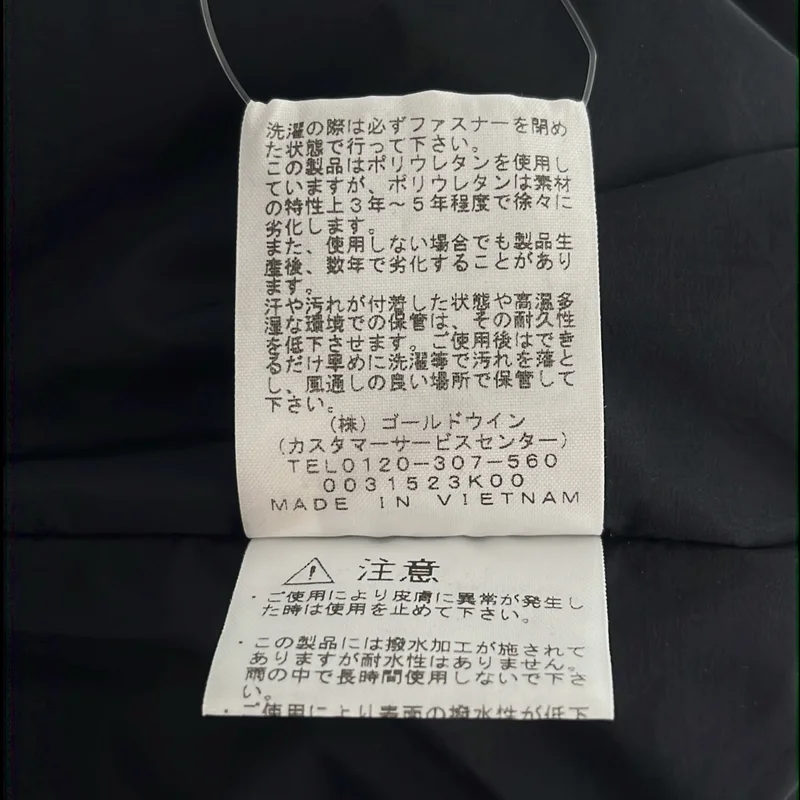 洗濯の際は必ずファスナーを閉め
た状態で行って下さい。
この製品はポリウレタンを使用し
ていますが、ポリウレタンは素材
の特性上3年～5年程度で徐々に
劣化します。
また、使用しない場合でも製品生
産後、数年で劣化することがあり
ます。
汗や汚れが付着した状態や高温多
湿な環境での保管は、その耐久性
を低下させます。ご使用後はでき
るだけ早めに洗濯等で汚れを落と
し、風通しの良い場所で保管して
下さい。
(株)ゴールドウイン
(カスタマーサービスセンター)
TEL0120-307-560
0031523K00
MADE IN VIETNAM
注意
・ご使用により皮膚に異常が発生し
た時は使用を止めて下さい。
・この製品には撥水加工が施されて
ありますが耐水性はありません。
雨の中で長時間使用しないで下さ
い。
・ご使用により表面の撥水性が低下